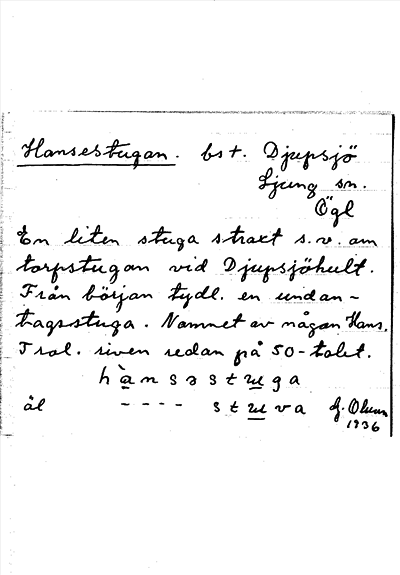 Hansestugan. bst. Djupsjö
Ljung sn.
Ögl
En liten stuga straxt s.v. om
torpstugan vid Djupsjöhult.
Från början tydl. en undan-
tagsstuga. Namnet av någon Hans.
Trol. riven redan på 50-talet.
hànsəstuga
äl ---- stuva G. Olsson
1936